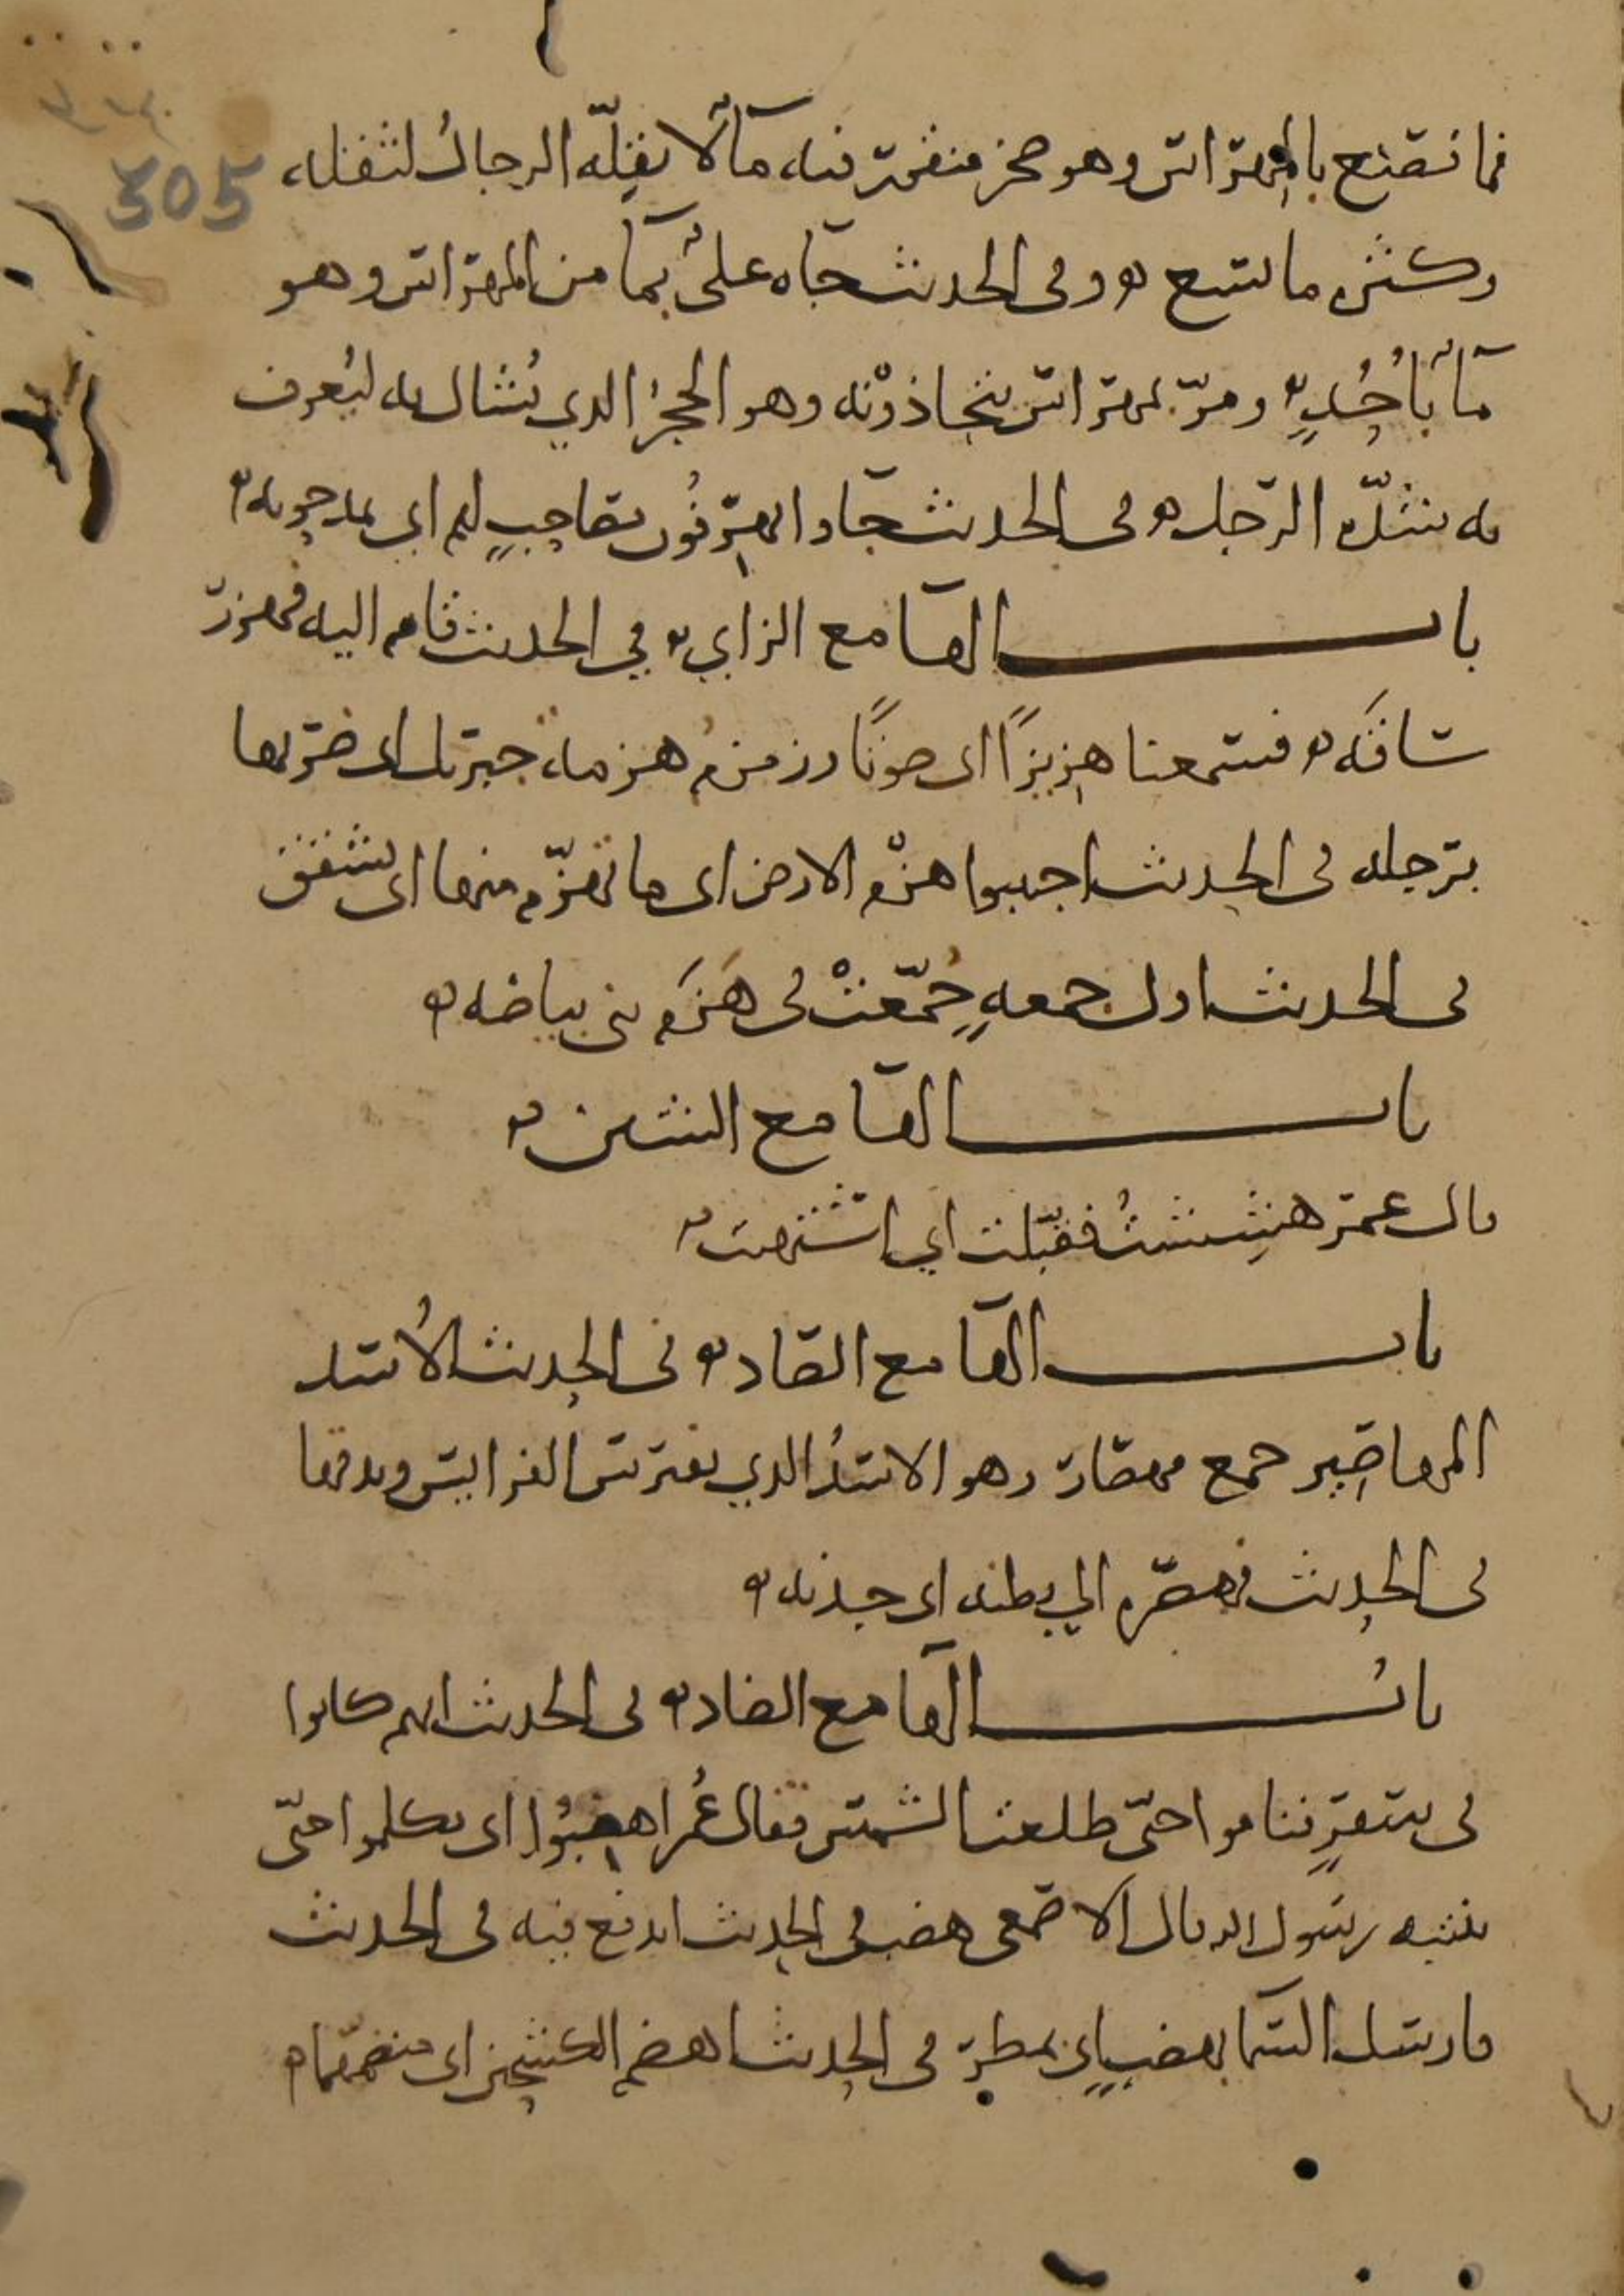 305
فما نصنع بالمهراس وهو صخر منقور فيه ماء لا يقله الرجال لثقله
وكثره ما يسع وفي الحديث جاه علي بما من المهراس وهو
ماء باحد ومر بمهراس يتجاذونه وهو الحجر الذي يشال به ليعرف
به شدة الرجل في الحديث جاوا يهرفون بصاحب لهم اي يمدحونه
باب الها مع الزاي في الحديث قام اليه فهزر
ساقه فسمعنا هزيزا اي صوتا زمزم هزمه جبريل اي ضربها
برجله في الحديث اجتنبوا هزم الارض اي ما تهزم منها اي تشقق
في الحديث اول جمعه جمعت في هزم بني بياضه
باب الها مع الشين
قال عمر هششت فقبلت اي اشتهيت
باب الها مع الصاد في الحديث الاسد
المهاصير جمع مهصار وهو الاسد الذي يفترس الفرايس ويدقها
في الحديث فهصره الي بطنه اي جذبه
باب الها مع الضاد في الحديث انهم كانوا
في سفر فناموا حتى طلعت الشمس فقال عمر اهضبوا اي تكلموا حتى
ينتبه رسول الله قال الاصمعي هضب في الحديث اندفع فيه في الحديث
فارسل السما بهضب اي بمطر في الحديث اهضم الكشحين اي منضمهما